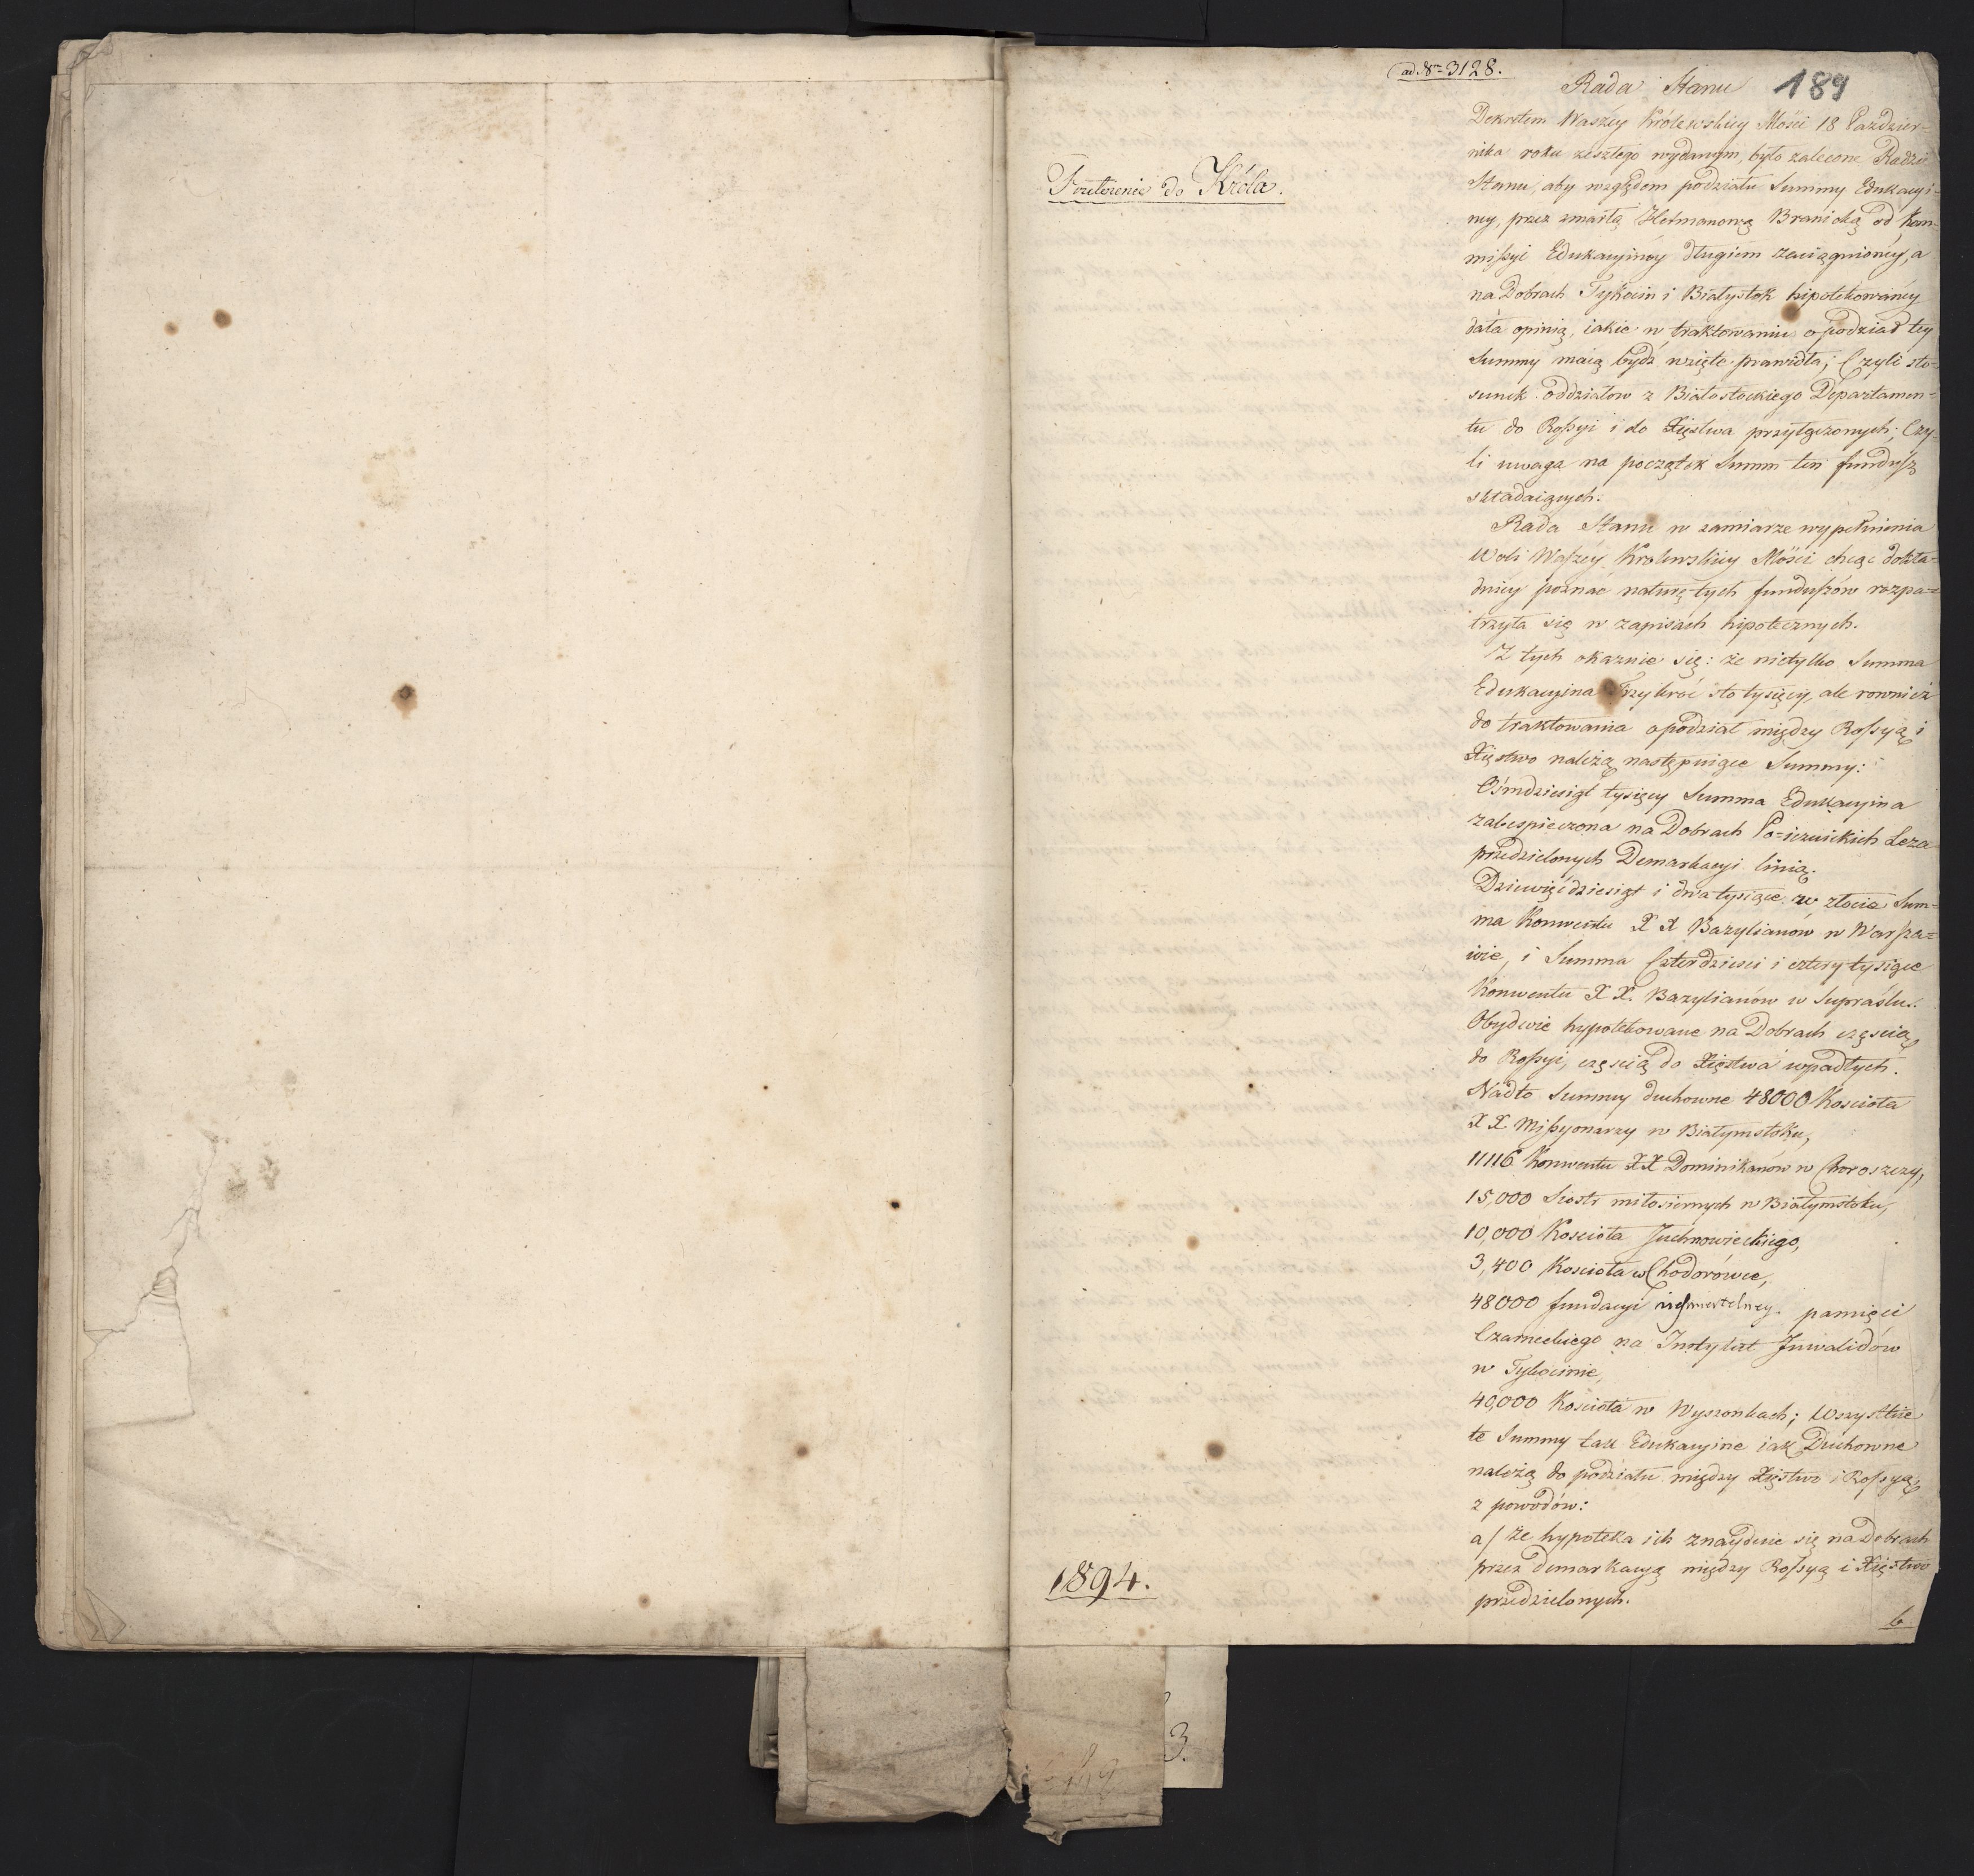 ad Nrm 3128.
189
Rada Stanu
Przełożenie do Króla.
Dekretem Waszéy Królewskiey Mości 18 Paździer-
nika roku zeszłego wydanym, było zalecone Radzie
Stanu, aby względem podziału Summy Edukacyi-
ney, przez zmarłą Hetmanową Branicką od Kom-
missyi Edukacyinéy długiem zaciągnionéy, a
na Dobrach Tykocin i Białystok hipotekowanéy
dała opinią, iakie w traktowaniu o podział tey
Summy maią bydź wzięte prawidła; Czyli sto-
sunek oddziałow z Białostockiego Departamen-
tu do Rossyi i do Xięstwa przyłączonych; Czy-
li uwaga na początek Summ ten fundusz
składaiących.
Rada Stanu w zamiarze wypełnienia
Woli Waszéy Krolewskiey Mości chcąc dokła-
dniey poznać naturę tych funduszów rozpa-
trzyła się w zapisach hipotecznych.
Z tych okazuie się: że nietylko Summa
Edukacyina Trzykroć sto tysięcy, ale rownież
do traktowania o podział między Rossyą i
Xięstwo należą następuiące Summy:
Ośmdziesiąt tysięcy Summa Edukacyina
zabespieczona na Dobrach Po-iezuickich Loza
przedzielonych Demarkacyi linią.
Dziewięćdziesiąt i dwa tysiące w złocie Sum-
ma Konwentu X X Bazylianow w Warsza-
wie, i Summa Czterdzieści i cztery tysiące
Konwentu X X. Bazylianów w Supraślu.
Obydwie hypotekowane na Dobrach częścią
do Rossyi, częścią do Xięstwa wpadłych.
Nadto Summy duchowne 48000 Kościoła
X X. Missyonarzy w Białymstoku,
11116 Konwentu XX Dominikanów w Choroszczy,
15,000 Siostr miłosiernych w Białymstoku,
10,000 Kościoła Juchnowieckiego,
3,400 Kościoła w Chodorówce,
48000 fundacyi nieśmiertelney pamięci
Czarneckiego na Instytut Inwalidów
w Tykocinie,
40,000 Kościoła w Wyszonkach; Wszystkie
te Summy tak Edukacyine iak Duchowne
należą do podziału między Xięstwo i Rossyą,
z powodów:
a/ Że hypoteka ich znayduie się na Dobrach
przez demarkacyą między Rossyą i Xięstwo
przedzielonych.
1894.
b
3.